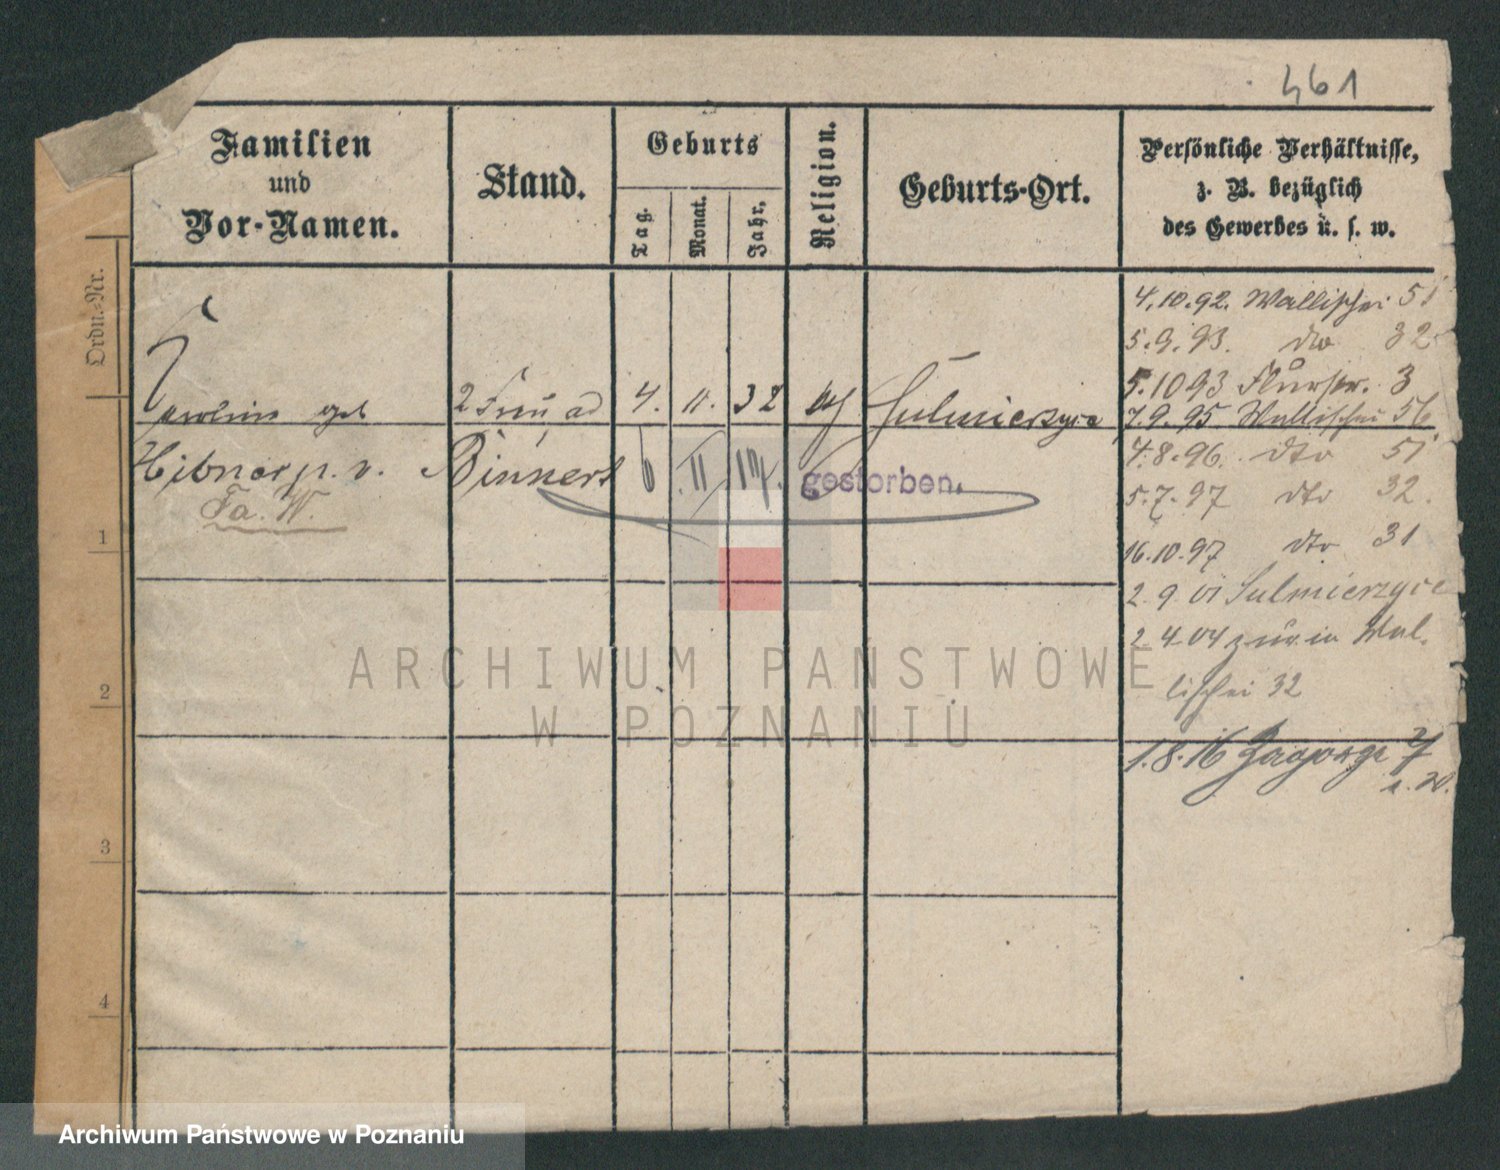 461
Familien
und
Vor-Namen.
Stand.
Geburts
Tag.
Monat.
Jahr.
Religion.
Geburts-Ort.
Persönliche Verhältnisse,
z. B. bezüglich
des Gewerbes u. s. w.
Ordn.-Nr.
4.10.92. Wallischei 51
5.9.93. dto 32
5.10 93 Flurstr. 3
7.9.95 Wallischei 56
geb 2 Frau ad 4. 11. 32 Sulmierzyce
4.8.96. dto 51
p. v. Binnert 6 II 17. gestorben.
5.7.97 dto 32.
Fa. W.
16.10.97 dto 31
1
2.9.01 Sulmierzyce
2.4.04 zur. in Wal-
lischei 32
2
1.8.16
3
4
ARCHIWUM PAŃSTWOWE
W POZNANIU
Archiwum Państwowe w Poznaniu